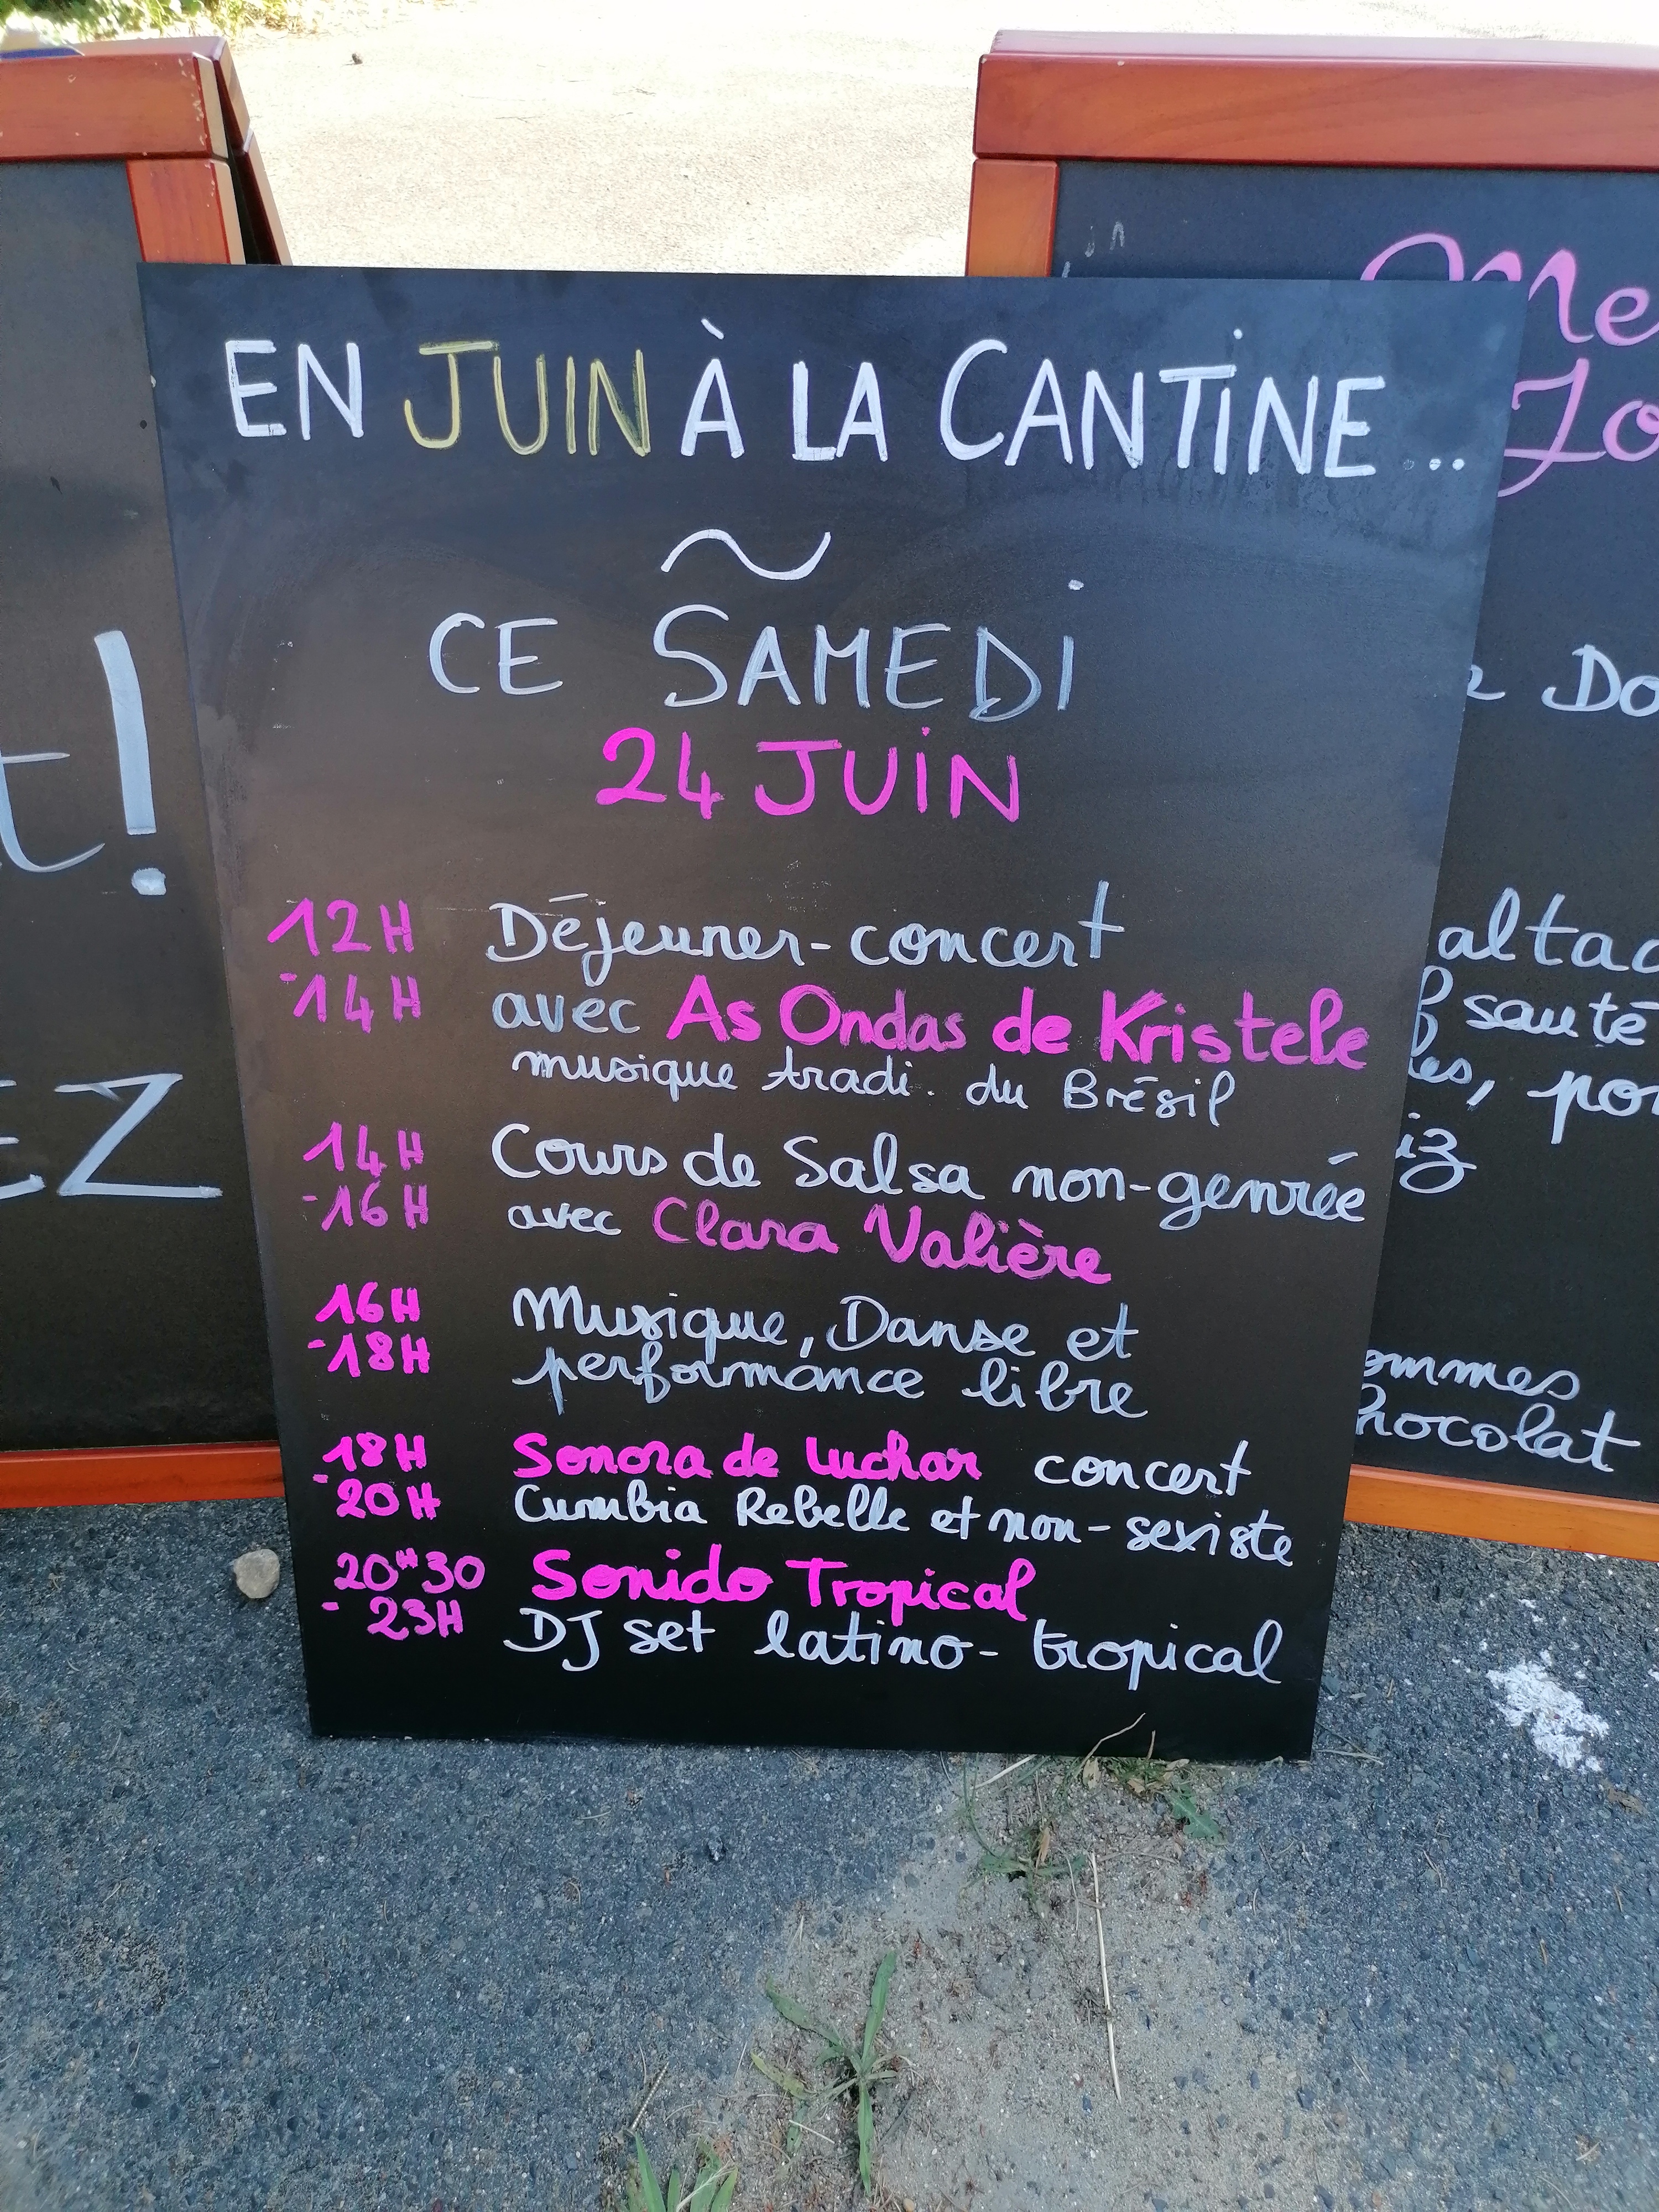 EN JUIN À LA CANTINE...
~
CE SAMEDI
24 JUIN
12H Déjeuner-concert
-14H avec As Ondas de Kristele
musique tradi. du Brésil
14H Cours de Salsa non-genrée
-16H avec Clara Valière
16H Musique, Danse et
-18H performance libre
18H Sonora de Luchar concert
-20H Cumbia Rebelle et non-sexiste
20H30 Sonido Tropical
- 23H DJ set latino-tropical
t!
EZ
Me
Jo
Do
altac
sauté
les, po
iz
ommes
hocolat